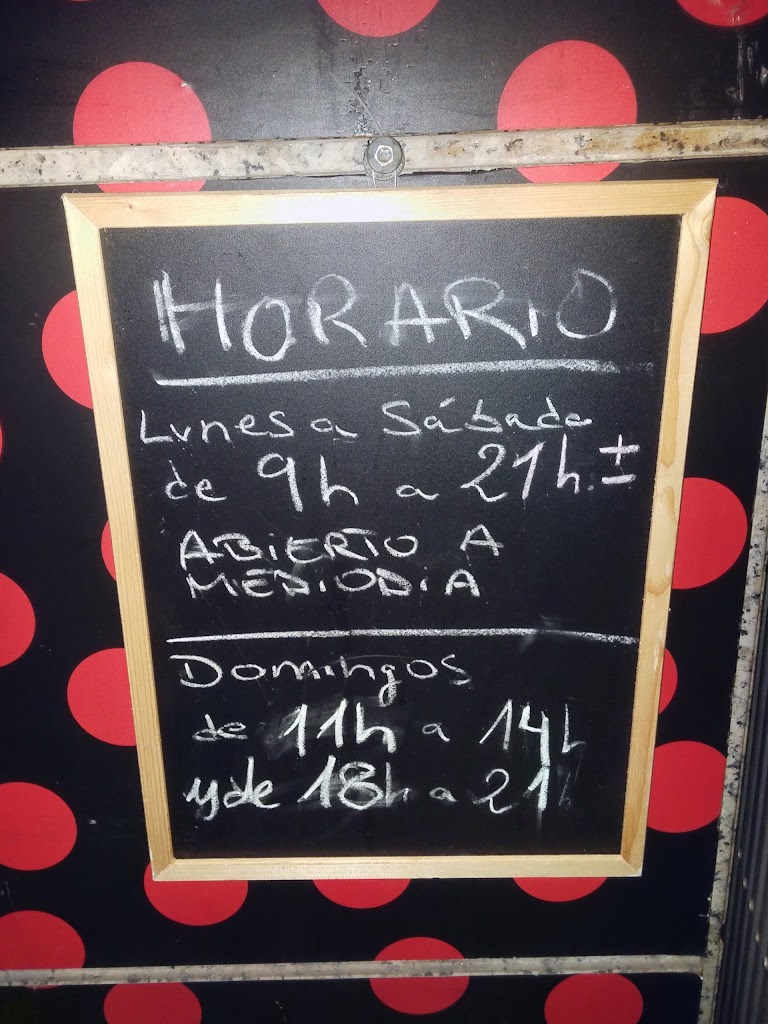 HORARIO
Lunes a Sábado
de 9h a 21h. ±
ABIERTO A
MEDIODIA
Domingos
de 11h a 14h
y de 18h a 21h